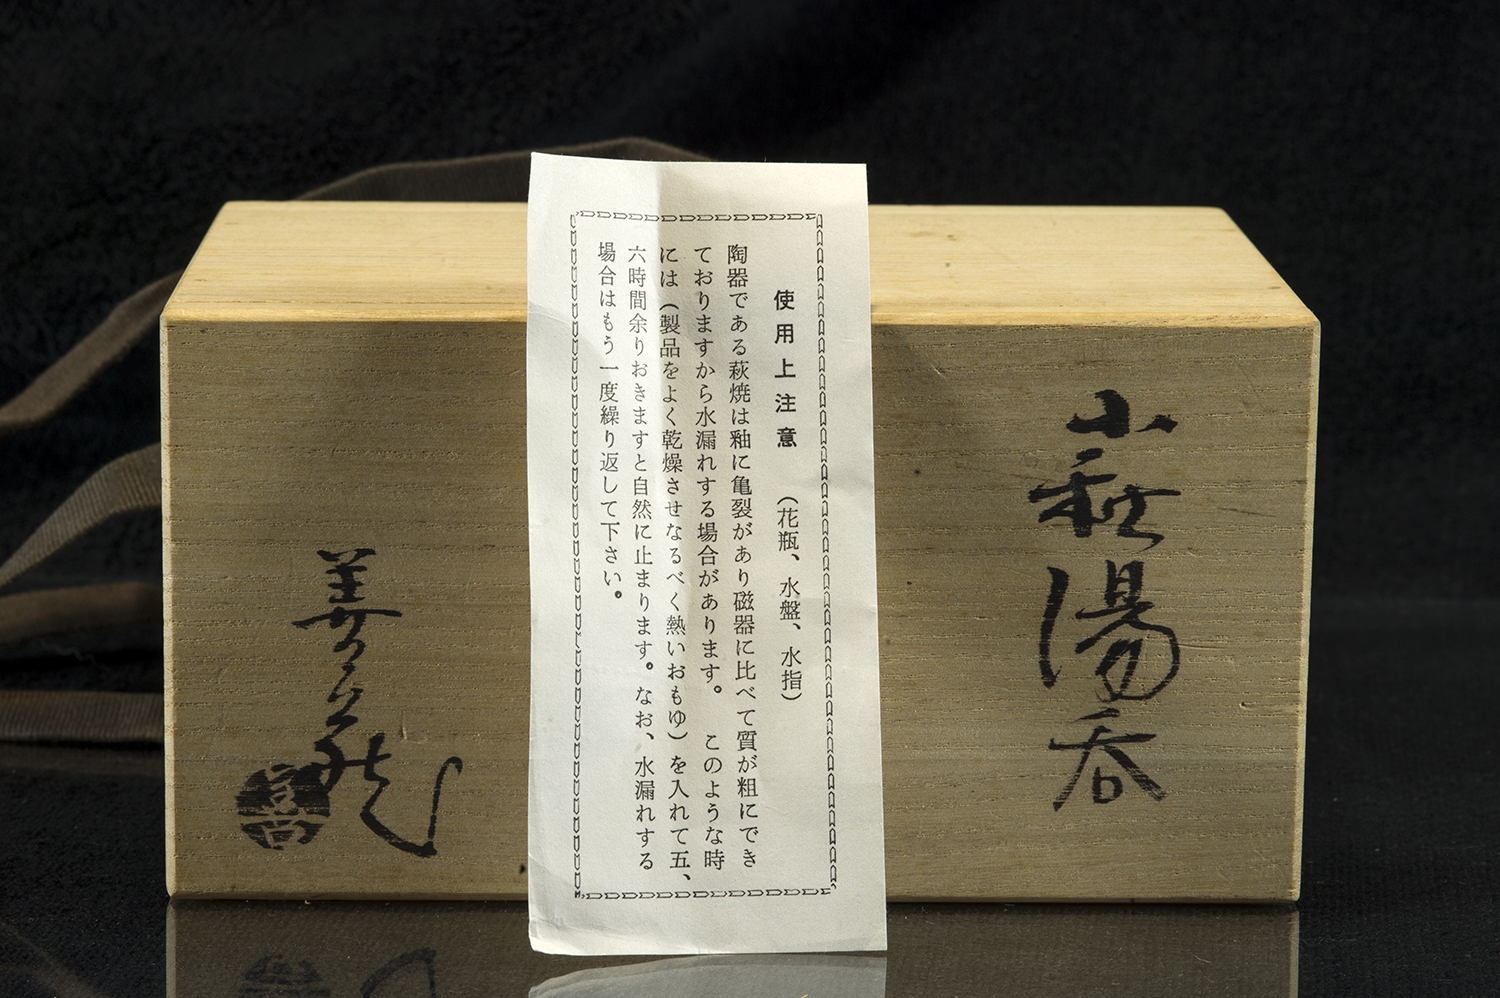 萩湯呑
使用上注意 （花瓶、水盤、水指）
陶器である萩焼は釉に亀裂があり磁器に比べて質が粗にでき
ておりますから水漏れする場合があります。 このような時
には（製品をよく乾燥させなるべく熱いおもゆ）を入れて五、
六時間余りおきますと自然に止まります。なお、水漏れする
場合はもう一度繰り返して下さい。